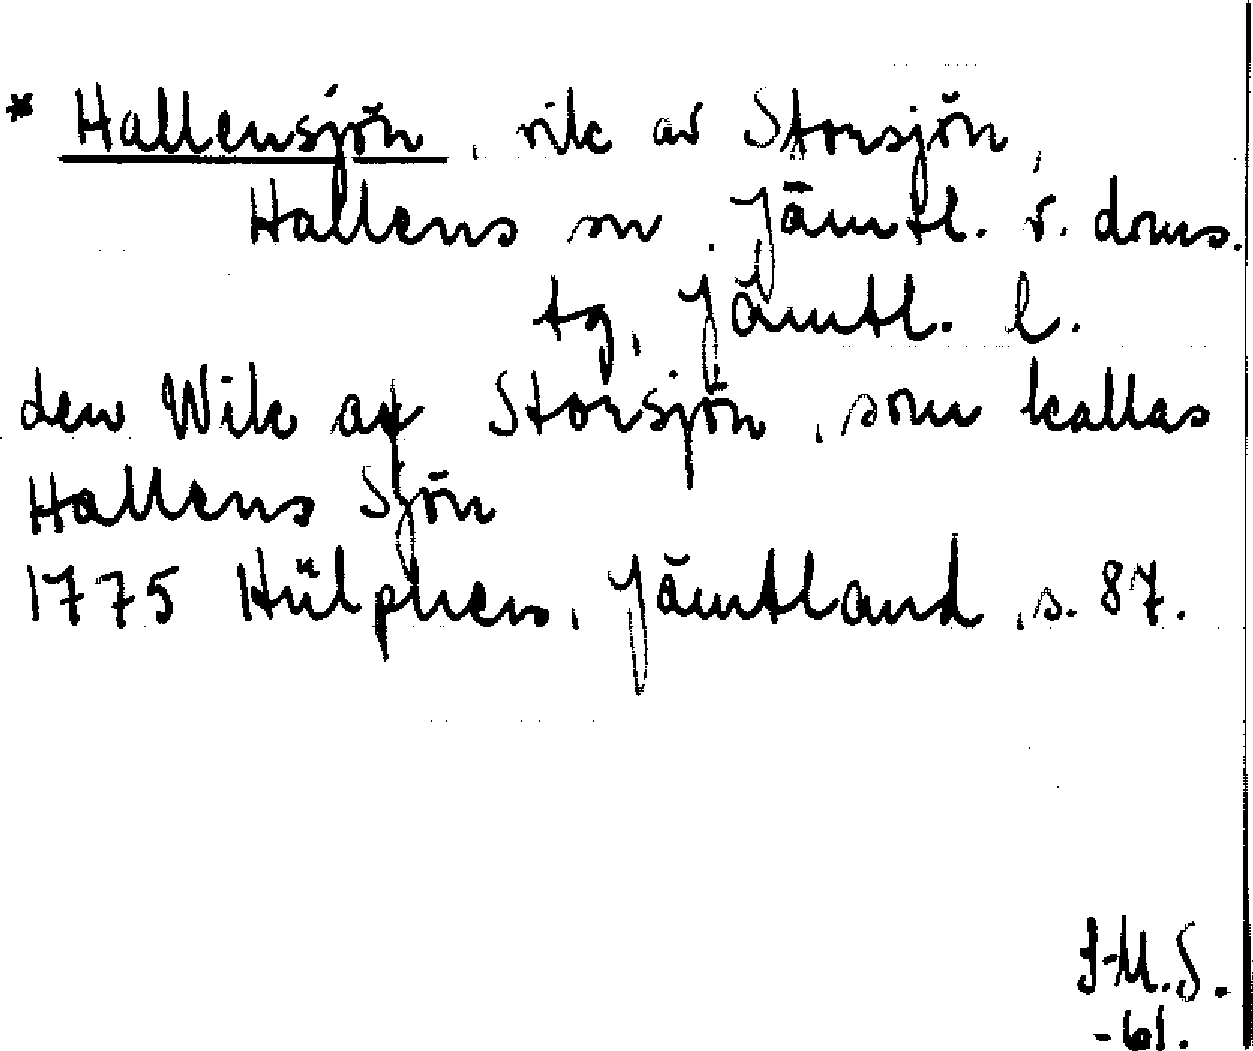 * Hallensjön, vik av Storsjön,
Hallens sn, Jämtl. v. doms.
tg, Jämtl. l.
den Wik af Storsjön, som kallas
Hallens Sjön
1775 Hülphers, Jämtland, s. 87.
I-M.S.
-61.